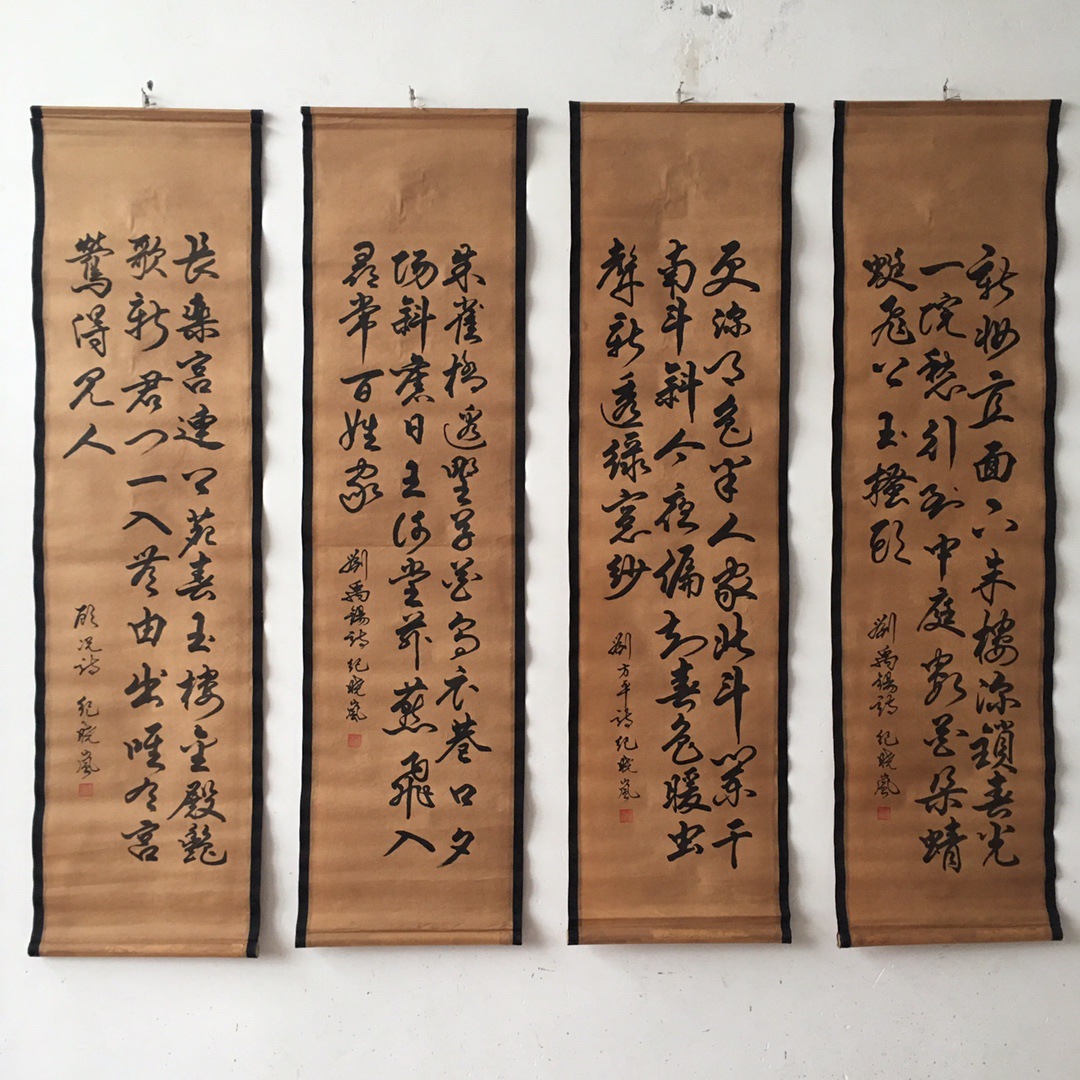 新妝宜面下朱樓深鎖春光
一院愁行到中庭數花朵蜻
蜓飛上玉搔頭
劉禹錫詩 紀曉嵐
更深月色半人家北斗闌干
南斗斜今夜偏知春色暖虫
聲新透綠窗紗
劉方平詩 紀曉嵐
朱雀橋邊野草花烏衣巷口夕
陽斜舊日王謝堂前燕飛入
尋常百姓家
劉禹錫詩 紀曉嵐
長樂宮連上苑春玉樓金殿艷
歌新君門一入無由出唯有宮
鶯得見人
顧況詩 紀曉嵐